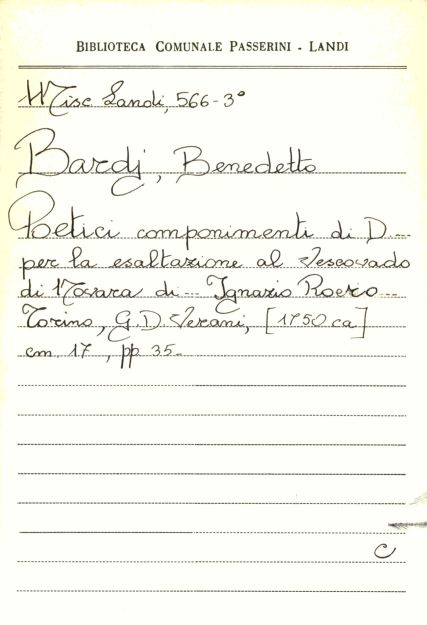 BIBLIOTECA COMUNALE PASSERINI - LANDI
Misc Landi, 566-3°
Bardj, Benedetto
Poetici componimenti di D...
per la esaltazione al Vescovado
di Novara di... Ignazio Roero...
Torino, G.D. Verani, [1750 ca]
cm. 17, pp 35.
C